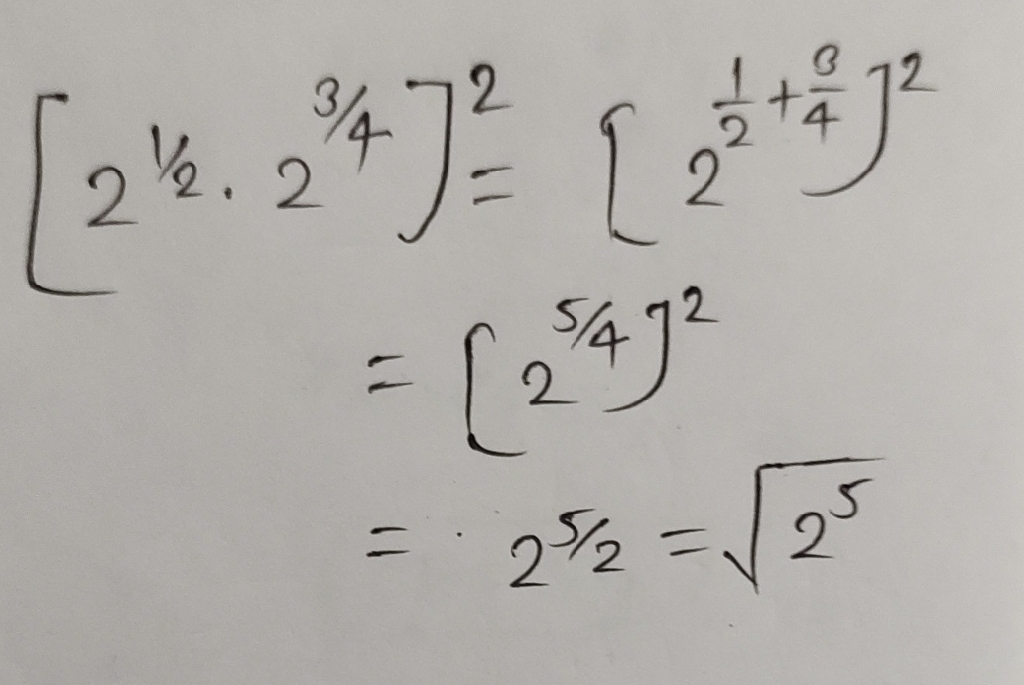 [2^{1/2} . 2^{3/4}]^2 = [2^{\frac{1}{2}+\frac{3}{4}}]^2
= [2^{5/4}]^2
= 2^{5/2} = \sqrt{2^5}